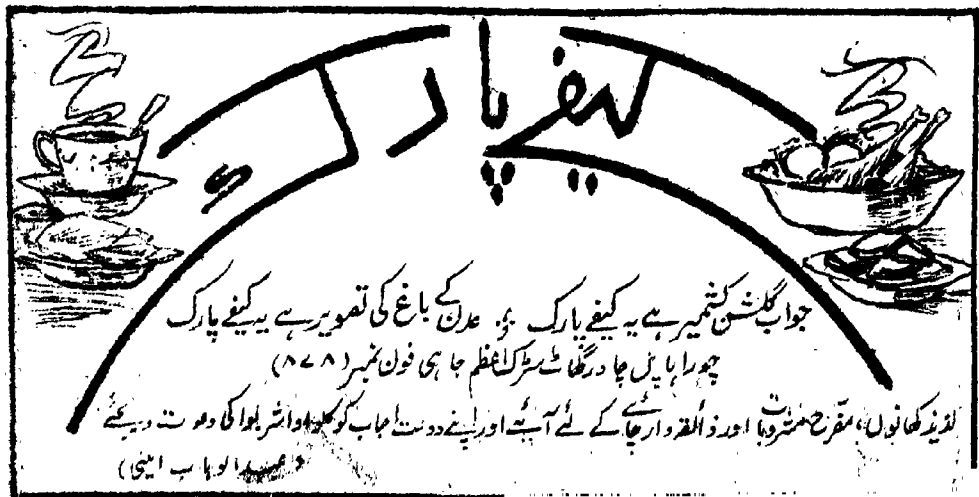 کیفے پارک
جواب گلشن کشمیر ہے یہ کیفے پارک ؛ عدن کے باغ کی تصویر ہے یہ کیفے پارک
چوراہا پل چادر گھاٹ سڑک اعظم جاہی فون نمبر (۸۷۸)
لذیذ کھانوں، مفرح مشروبات اور ذائقہ دار چائے کے لئے آیئے اور اپنے دوست احباب کو کلوا واشربوا کی دعوت دیجئے
(عبدالوہاب